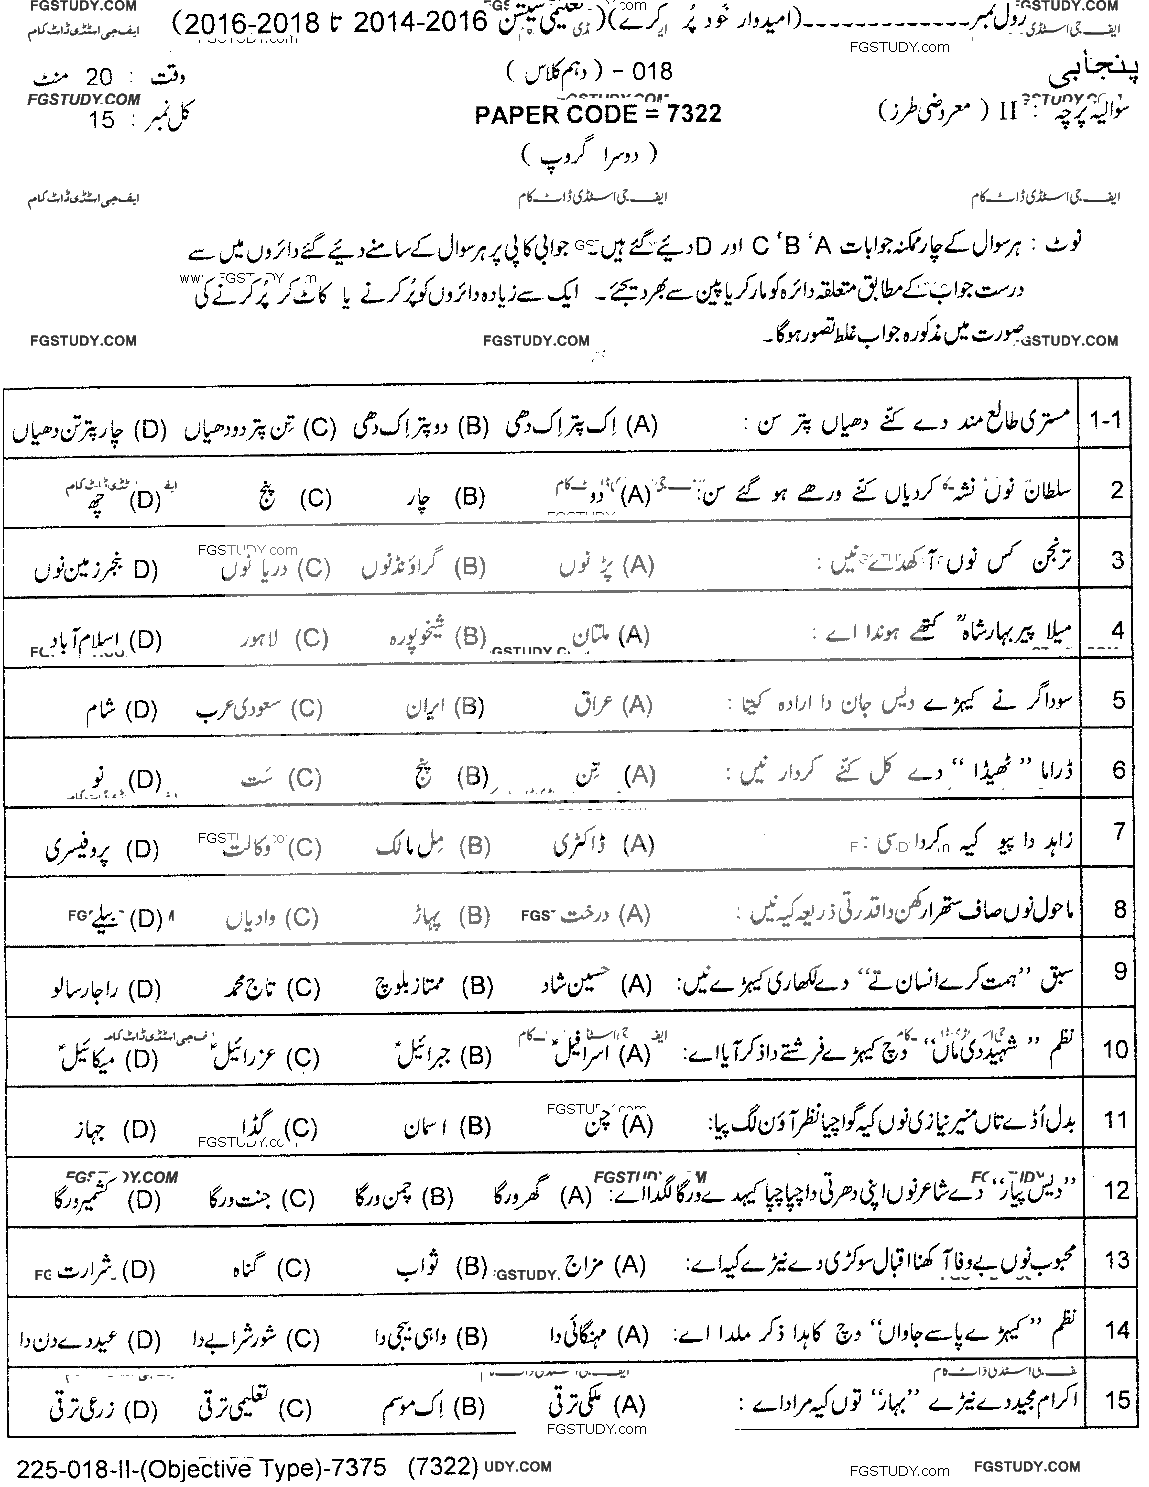 FGSTUDY.COM FGSTUDY.COM
رول نمبر------------(امیدوار خود پُر کرے)( تعلیمی سیشن 2014-2016 تا 2016-2018)
ایف جی اسٹڈی ڈاٹ کام
FGSTUDY.com
پنجابی 018 - ( دہم کلاس ) وقت : 20 منٹ
FGSTUDY.COM
سوالیہ پرچہ : II ( معروضی طرز ) PAPER CODE = 7322 کل نمبر : 15
( دوسرا گروپ )
ایف جی اسٹڈی ڈاٹ کام ایف جی اسٹڈی ڈاٹ کام ایف جی اسٹڈی ڈاٹ کام
نوٹ : ہر سوال کے چار ممکنہ جوابات A ، B ، C اور D دیئے گئے ہیں۔ جوابی کاپی پر ہر سوال کے سامنے دیئے گئے دائروں میں سے
درست جواب کے مطابق متعلقہ دائرہ کو مارکر یا پین سے بھر دیجئے۔ ایک سے زیادہ دائروں کو پُر کرنے یا کاٹ کر پُر کرنے کی
صورت میں مذکورہ جواب غلط تصور ہوگا۔
FGSTUDY.COM FGSTUDY.COM GSTUDY.COM
1-1 مستری طالع مند دے کنّے دھیاں پتر سن : (A) اِک پتر اِک دھی (B) دو پتر اِک دھی (C) تِن پتر دو دھیاں (D) چار پتر تن دھیاں
2 سلطان نوں نشہ کردیاں کنّے ورھے ہو گئے سن: (A) دو (B) چار (C) پنج (D) چھ
3 ترنجن کس نوں آکھدے نیں : (A) پڑ نوں (B) گراؤنڈ نوں (C) دریا نوں (D بنجر زمین نوں
FGSTUDY.com
4 میلا پیر بہار شاہؒ کتھے ہوندا اے : (A) ملتان (B) شیخوپورہ (C) لاہور (D) اسلام آباد
5 سوداگر نے کیہڑے دیس جان دا ارادہ کیتا : (A) عراق (B) ایران (C) سعودی عرب (D) شام
6 ڈراما ”ٹھیڈا“ دے کل کنّے کردار نیں : (A) تِن (B) پنج (C) ست (D) نو
7 زاہد دا پیو کیہ کردا سی : (A) ڈاکٹری (B) مِل مالک (C) وکالت (D) پروفیسری
8 ماحول نوں صاف ستھرا رکھن دا قدرتی ذریعہ کیہ نیں : (A) درخت (B) پہاڑ (C) وادیاں (D) بیلے
9 سبق ”ہمت کرے انسان تے“ دے لکھاری کیہڑے نیں: (A) حسین شاد (B) ممتاز بلوچ (C) تاج محمد (D) راجا رسالو
10 نظم ”شہید دی ماں“ وچ کیہڑے فرشتے دا ذکر آیا اے: (A) اسرافیلؑ (B) جبرائیلؑ (C) عزرائیلؑ (D) میکائیلؑ
11 بدل اُڈے تاں منیر نیازی نوں کیہ گواچیا نظر آؤن لگ پیا: (A) چن (B) اسمان (C) گڈا (D) جہاز
FGSTUDY.com
12 ”دیس پیار“ دے شاعر نوں اپنی دھرتی دا چپا چپا کیہدے ورگا لگدا اے: (A) گھر ورگا (B) چمن ورگا (C) جنت ورگا (D) کشمیر ورگا
13 محبوب نوں بے وفا آکھنا اقبال سوکڑی دے نیڑے کیہ اے: (A) مزاج (B) ثواب (C) گناہ (D) شرارت
14 نظم ”کیہڑے پاسے جاواں“ وچ کاہدا ذکر ملدا اے : (A) مہنگائی دا (B) واہی بیجی دا (C) شور شرابے دا (D) عید دے دن دا
15 اکرام مجید دے نیڑے ”بہار“ توں کیہ مراد اے : (A) ملکی ترقی (B) اِک موسم (C) تعلیمی ترقی (D) زرعی ترقی
FGSTUDY.com
225-018-II-(Objective Type)-7375 (7322) UDY.COM FGSTUDY.com FGSTUDY.COM